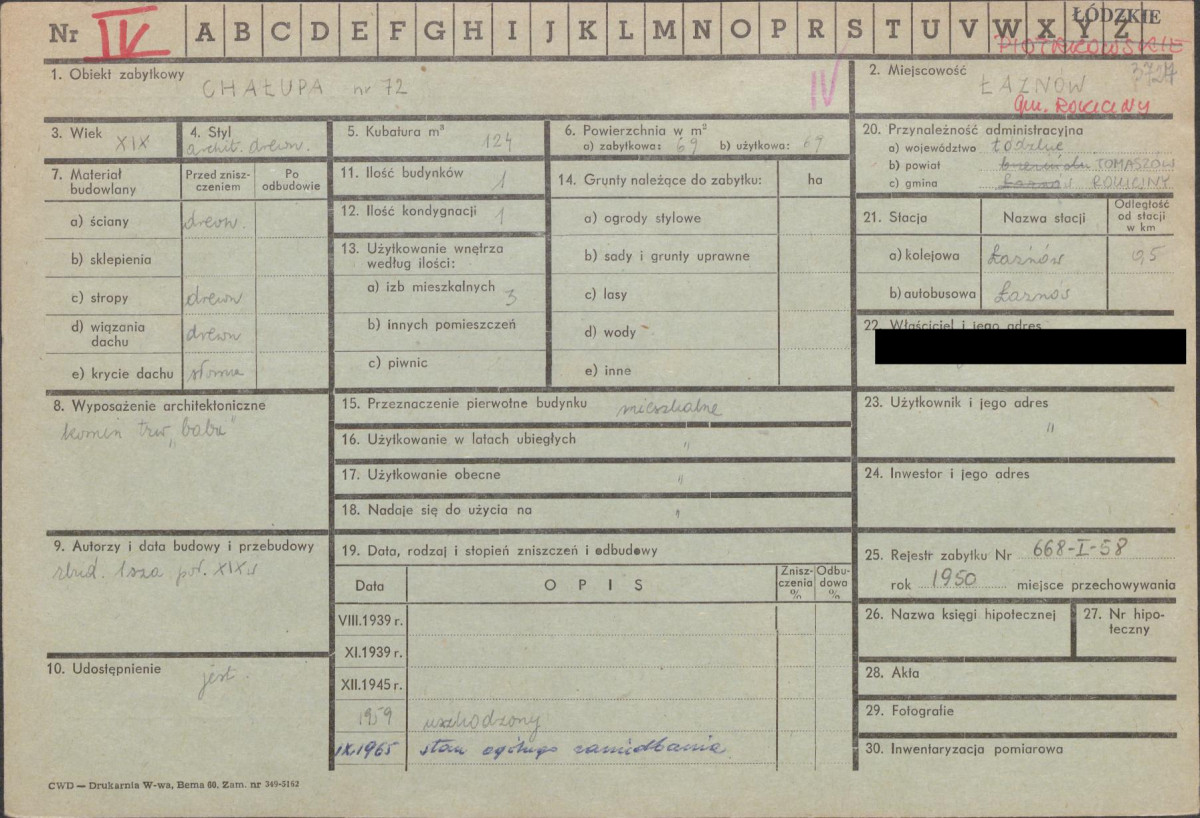 Nr IV A B C D E F G H I J K L M N O P R S T U V W X Y Z
ŁÓDZKIE
PIOTRKOWSKIE
1. Obiekt zabytkowy CHAŁUPA nr 72 IV
2. Miejscowość 3727
ŁAZNÓW
gm. ROKICINY
3. Wiek XIX
4. Styl
archit. drewn.
5. Kubatura m³ 124
6. Powierzchnia w m²
a) zabytkowa: 69 b) użytkowa: 69
7. Materiał budowlany
Przed zniszczeniem
Po odbudowie
a) ściany drewn.
b) sklepienia
c) stropy drewn
d) wiązania dachu drewn
e) krycie dachu słoma
8. Wyposażenie architektoniczne
komin tzw „baba"
9. Autorzy i data budowy i przebudowy
zbud. 1sza poł. XIX w
10. Udostępnienie jest
11. Ilość budynków 1
12. Ilość kondygnacji 1
13. Użytkowanie wnętrza
według ilości:
a) izb mieszkalnych 3
b) innych pomieszczeń
c) piwnic
14. Grunty należące do zabytku: ha
a) ogrody stylowe
b) sady i grunty uprawne
c) lasy
d) wody
e) inne
15. Przeznaczenie pierwotne budynku mieszkalne
16. Użytkowanie w latach ubiegłych "
17. Użytkowanie obecne "
18. Nadaje się do użycia na "
19. Data, rodzaj i stopień zniszczeń i odbudowy
Data OPIS Zniszczenia % Odbudowa %
VIII.1939 r.
XI.1939 r.
XII.1945 r.
1959 uszkodzony
IX.1965 stan ogólnego zaniedbania
20. Przynależność administracyjna
a) województwo Łódzkie
b) powiat brzeziński TOMASZÓW
c) gmina Łaznów ROKICINY
21. Stacja Nazwa stacji Odległość od stacji w km
a) kolejowa Łaznów 0,5
b) autobusowa Łaznów
22. Właściciel i jego adres
23. Użytkownik i jego adres
"
24. Inwestor i jego adres
25. Rejestr zabytku Nr 668-I-58
rok 1950 miejsce przechowywania
26. Nazwa księgi hipotecznej
27. Nr hipoteczny
28. Akta
29. Fotografie
30. Inwentaryzacja pomiarowa
CWD — Drukarnia W-wa, Bema 60, Zam. nr 349-5162